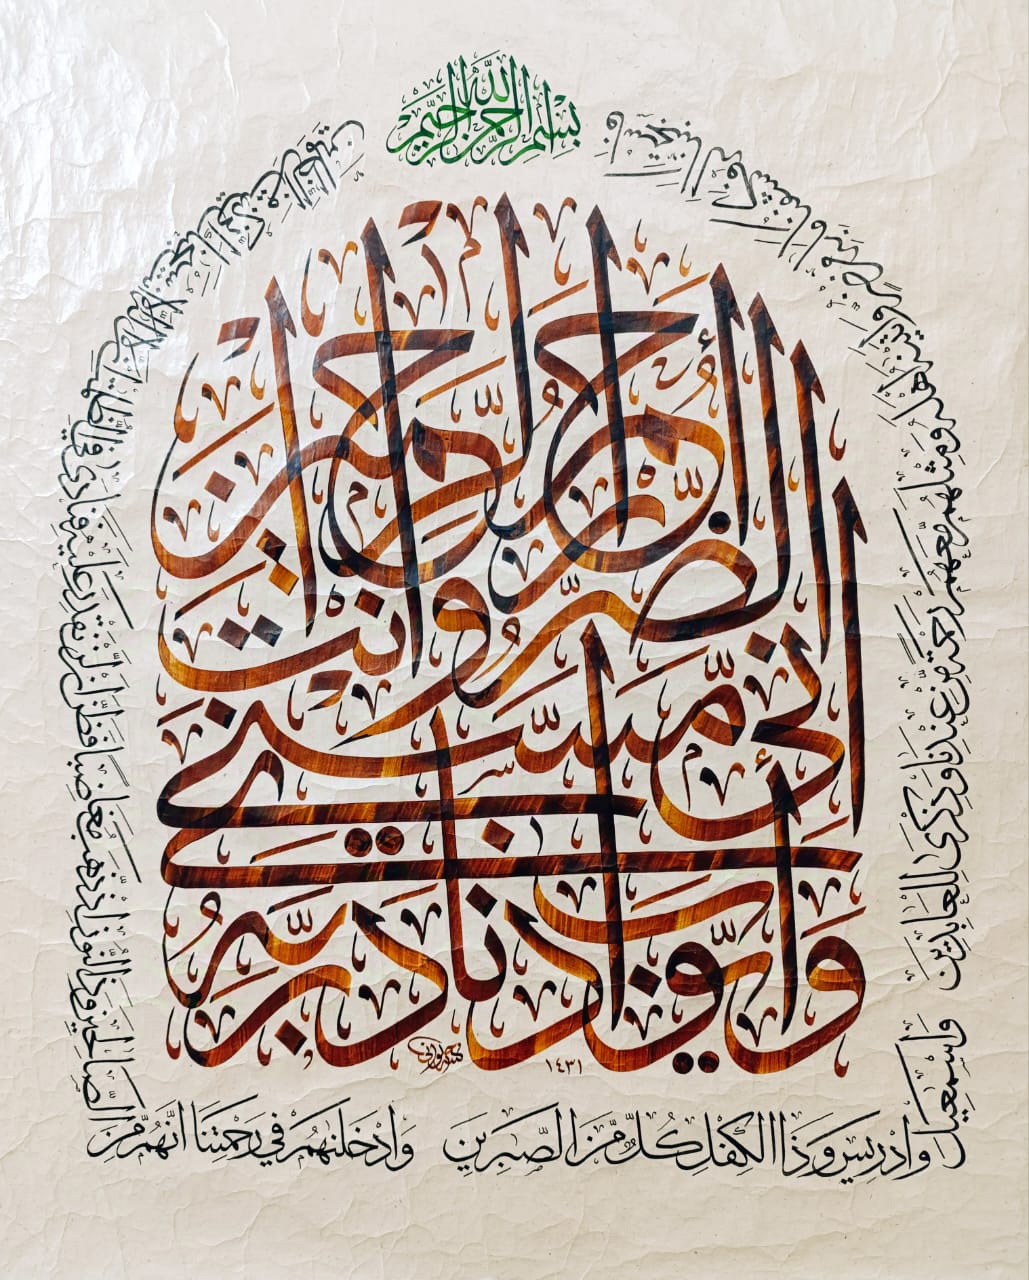 بِسْمِ اللَّهِ الرَّحْمٰنِ الرَّحِيمِ
وَأَيُّوبَ إِذْ نَادَىٰ رَبَّهُ
أَنِّي مَسَّنِيَ
الضُّرُّ وَأَنْتَ
أَرْحَمُ الرَّاحِمِينَ
١٤٣١
فَاسْتَجَبْنَا لَهُ فَكَشَفْنَا مَا بِهِ مِنْ ضُرٍّ وَآتَيْنَاهُ أَهْلَهُ وَمِثْلَهُمْ مَعَهُمْ رَحْمَةً مِنْ عِنْدِنَا وَذِكْرَىٰ لِلْعَابِدِينَ
وَإِسْمٰعِيلَ
وَإِدْرِيسَ وَذَا الْكِفْلِ كُلٌّ مِنَ الصّٰبِرِينَ وَأَدْخَلْنٰهُمْ فِي رَحْمَتِنَا إِنَّهُمْ مِنَ
الصَّالِحِينَ وَذَا النُّونِ إِذْ ذَهَبَ مُغَاضِبًا فَظَنَّ أَنْ لَنْ نَقْدِرَ عَلَيْهِ فَنَادَىٰ فِي الظُّلُمَاتِ أَنْ لَا إِلٰهَ إِلَّا أَنْتَ سُبْحَانَكَ إِنِّي كُنْتُ مِنَ الظَّالِمِينَ